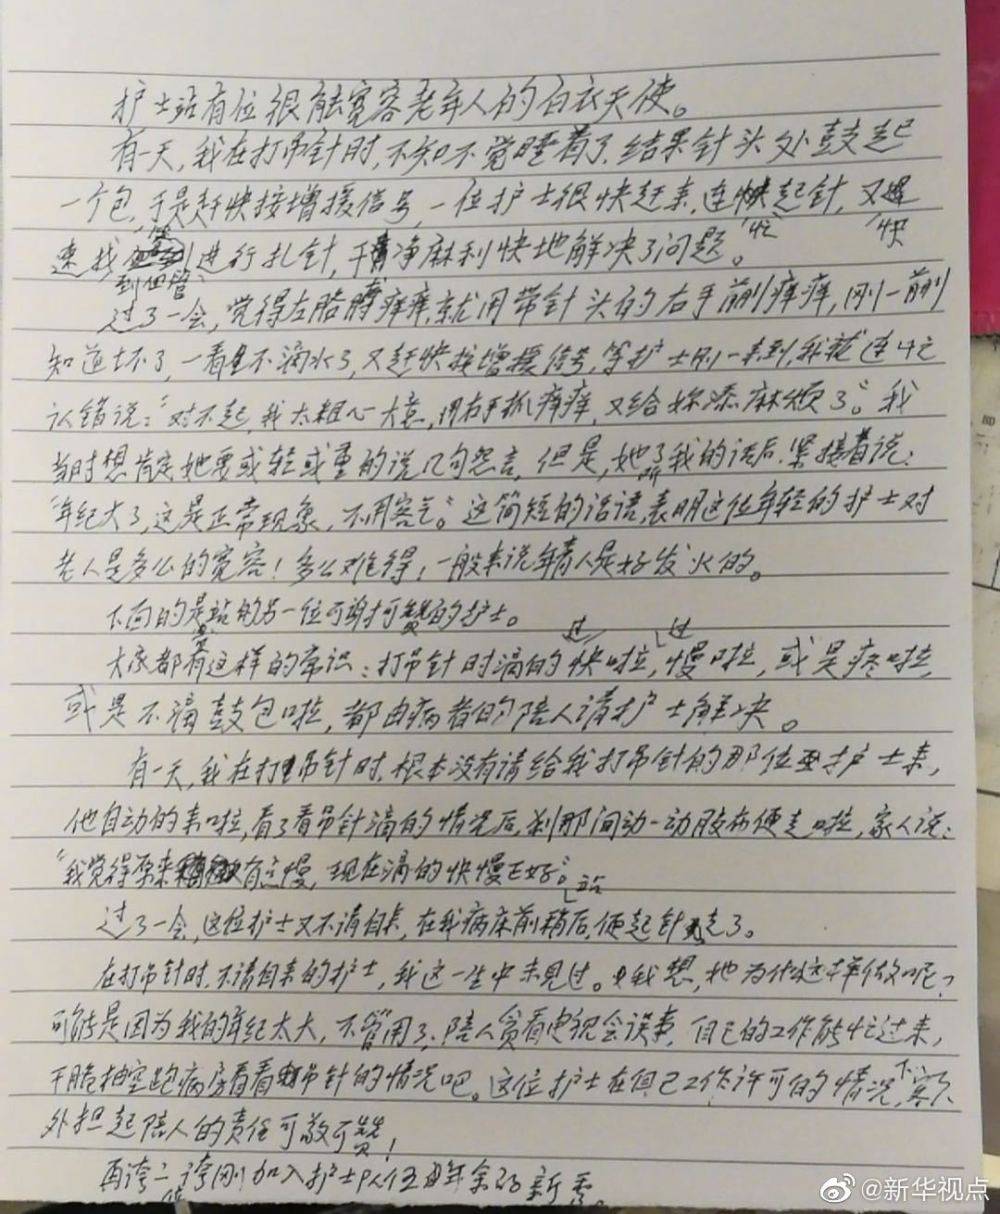 护士站有位很能宽容老年人的白衣天使。
有一天,我在打吊针时,不知不觉睡着了,结果针头处鼓起
一个包,于是赶快按增援信号,一位护士很快赶来,连忙起针,又快
速找到血管进行扎针,干净麻利快地解决了问题。
过了一会,觉得左胳膊痒痒,就用带针头的右手前削痒痒,刚一削
知道坏了,一看不滴水了,又赶快按增援信号,等护士刚一来到,我就连忙
认错说:“对不起,我太粗心大意,用右手抓痒痒,又给妳添麻烦了。”我
当时想肯定她要或轻或重的说几句怨言,但是,她听了我的话后,紧接着说:
“年纪大了,这是正常现象,不用客气。”这简短的话语,表明这位年轻的护士对
老人是多么的宽容!多么难得!一般来说年青人是好发火的。
下面的是站的另一位可谢可赞的护士。
大家都有这样的常识:打吊针时滴的过快啦,过慢啦,或是疼啦,
或是不滴鼓包啦,都由病者的陪人请护士解决。
有一天,我在打吊针时,根本没有请给我打吊针的那位护士来,
他自动的来啦,看了看吊针滴的情况后,刹那间动一动胶布便走啦,家人说:
“我觉得原来有点慢,现在滴的快慢正好。”
过了一会,这位护士又不请自来,在我病床前稍站后,便起针走了。
在打吊针时,不请自来的护士,我这一生中未见过。我想,她为什么这样做呢?
可能是因为我的年纪太大,不管用了,陪人贪看电视会误事,自己的工作能忙过来,
干脆抽空跑病房看看吊针的情况吧。这位护士在自己工作许可的情况下,额
外担起陪人的责任可敬可赞!
再夸一夸刚加入护士队伍年余的新秀。
@新华视点